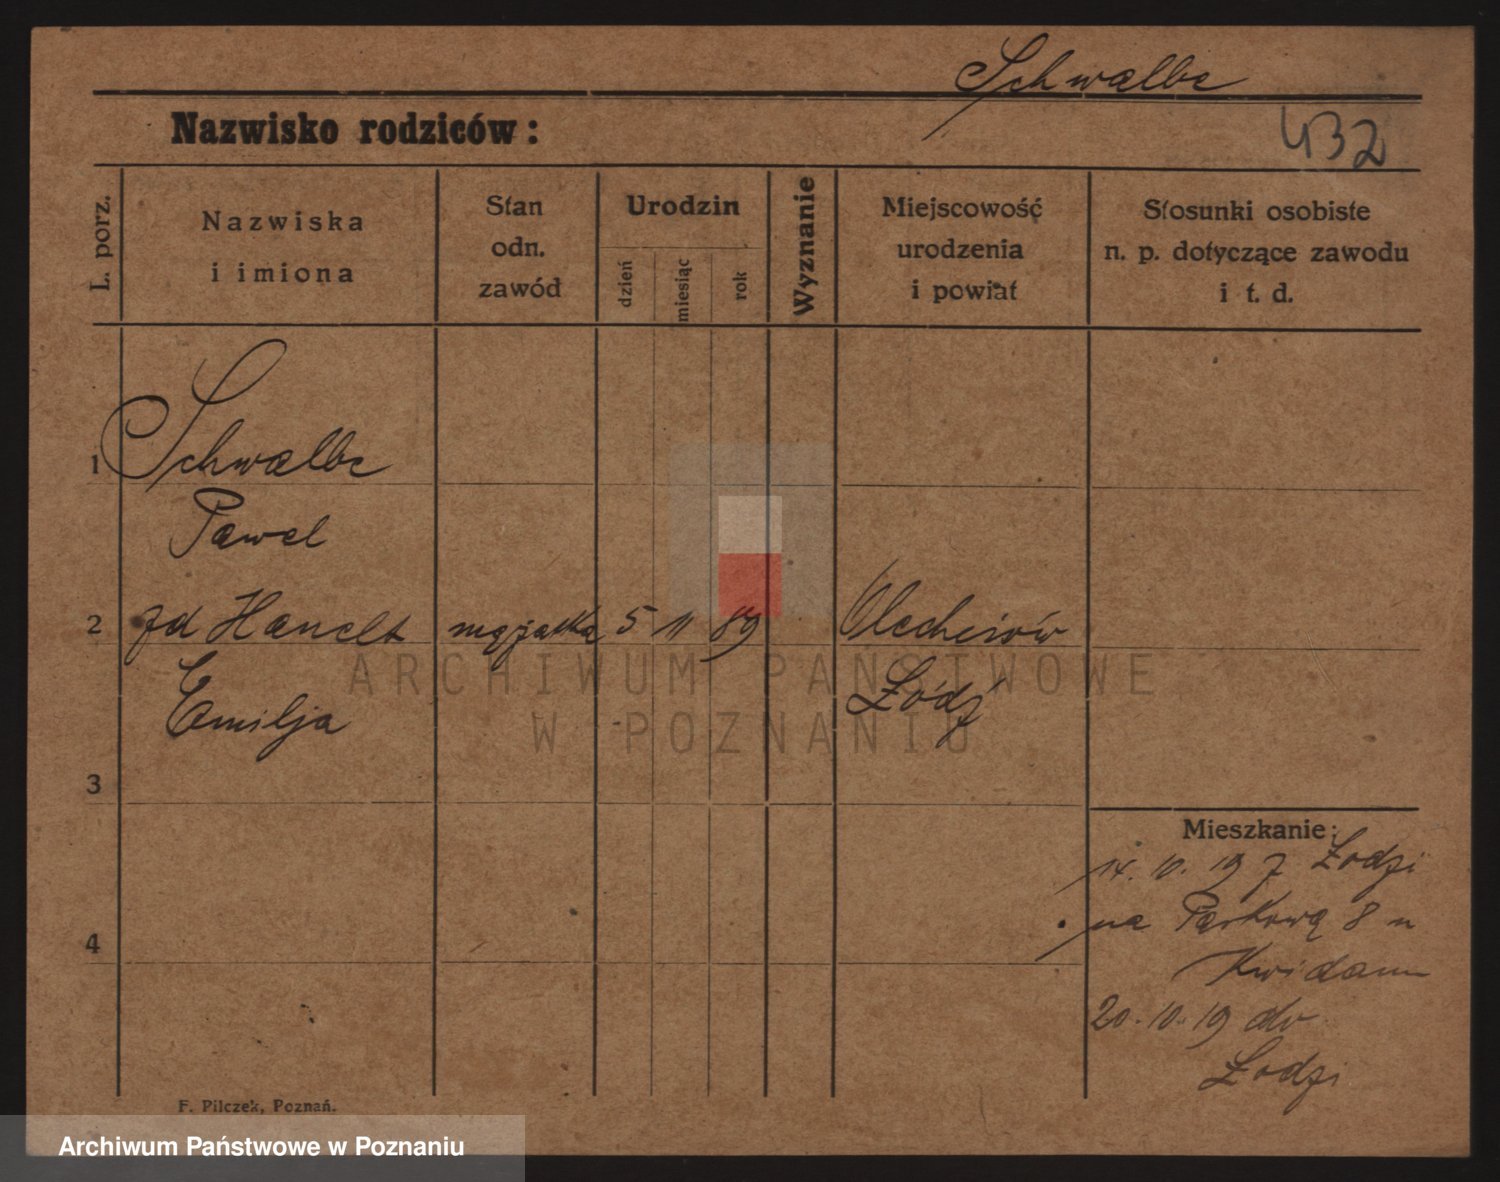 Schwalbe
Nazwisko rodziców:
432
L. porz.
Nazwiska
i imiona
Stan
odn.
zawód
Urodzin
dzień
miesiąc
rok
Wyznanie
Miejscowość
urodzenia
i powiat
Stosunki osobiste
n. p. dotyczące zawodu
i t. d.
1 Schwalbe
Pawel
2 zd Hanelt 5 11 89
Emilja Łódź
3
4
Mieszkanie:
14. 10. 19 z Łodzi
na Parkową 8 u
20. 10. 19 do
Łodzi
F. Pilczek, Poznań.
ARCHIWUM PAŃSTWOWE
W POZNANIU
Archiwum Państwowe w Poznaniu